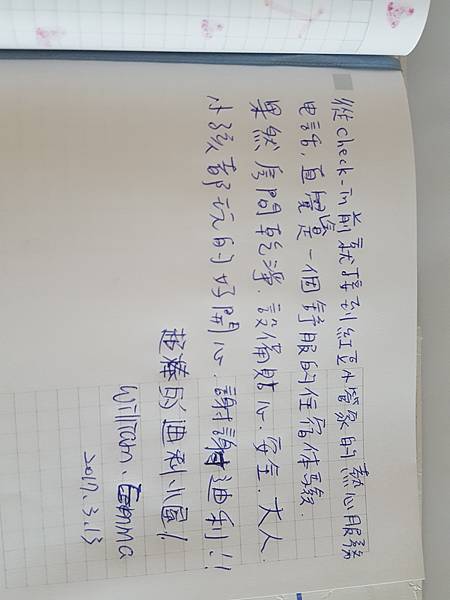 從check-in前就接到紅豆小管家的熱心服務
電話,直覺會是一個舒服的住宿体驗.
果然房間乾淨.設備貼心.安全.大人
小孩都玩的好開心.謝謝迪利!!
超棒的迪利小宣!
William. Emma
2017.3.13